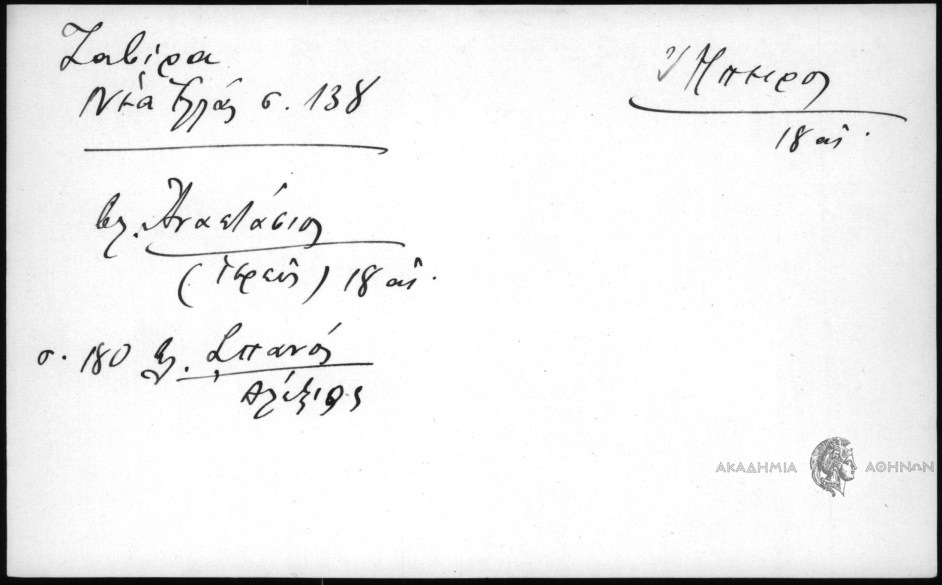 Ζαβίρα
Νέα Ἑλλάς σ. 138
Ἤπειρος
18 αἰ.
βλ. Ἀναστάσιος
(Ἱερεὺς) 18 αἰ.
σ. 180 βλ. Σπανός
Ἀλέξιος
ΑΚΑΔΗΜΙΑ ΑΘΗΝΩΝ